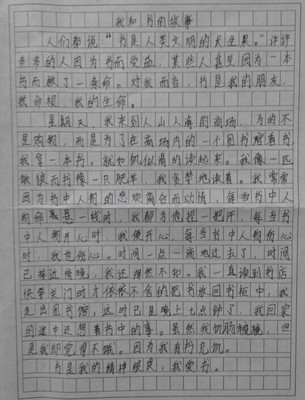 我和书的故事
人们都说“书是人类文明的长生果。”许许
多多的人因为书而受益，某些人甚至因为一本
书而救了一条命。对我而言，书是我的朋友，
我的根，我的生命。
星期天，我来到人山人海的商场，为的不
是购物，而是为了在商场内的一个图书馆看书
我拿一本书，就如饥似渴的读起来。我像一匹
饿狼而书像一只肥羊，我贪梦地读着。我常常
因为书中人物的悲欢离合而动情，每当书中人
物命悬一线时，我都为他捏一把汗，每当书
中人物开心时，我便开心，每当书中人物伤心
时，我也伤心。时间一点一滴地过去了，时间
已接近傍晚，我还浑然不知。我一直读到书店
快要关门时才依依不舍的把书放回书柜中，我
走出图书馆，这时已是晚上七点钟了，我回家
的途中还想着书中的事。虽然我饥肠辘辘，但
是我却觉得不饿。因为我有书充饥。
书是我的精神粮食，我爱书。